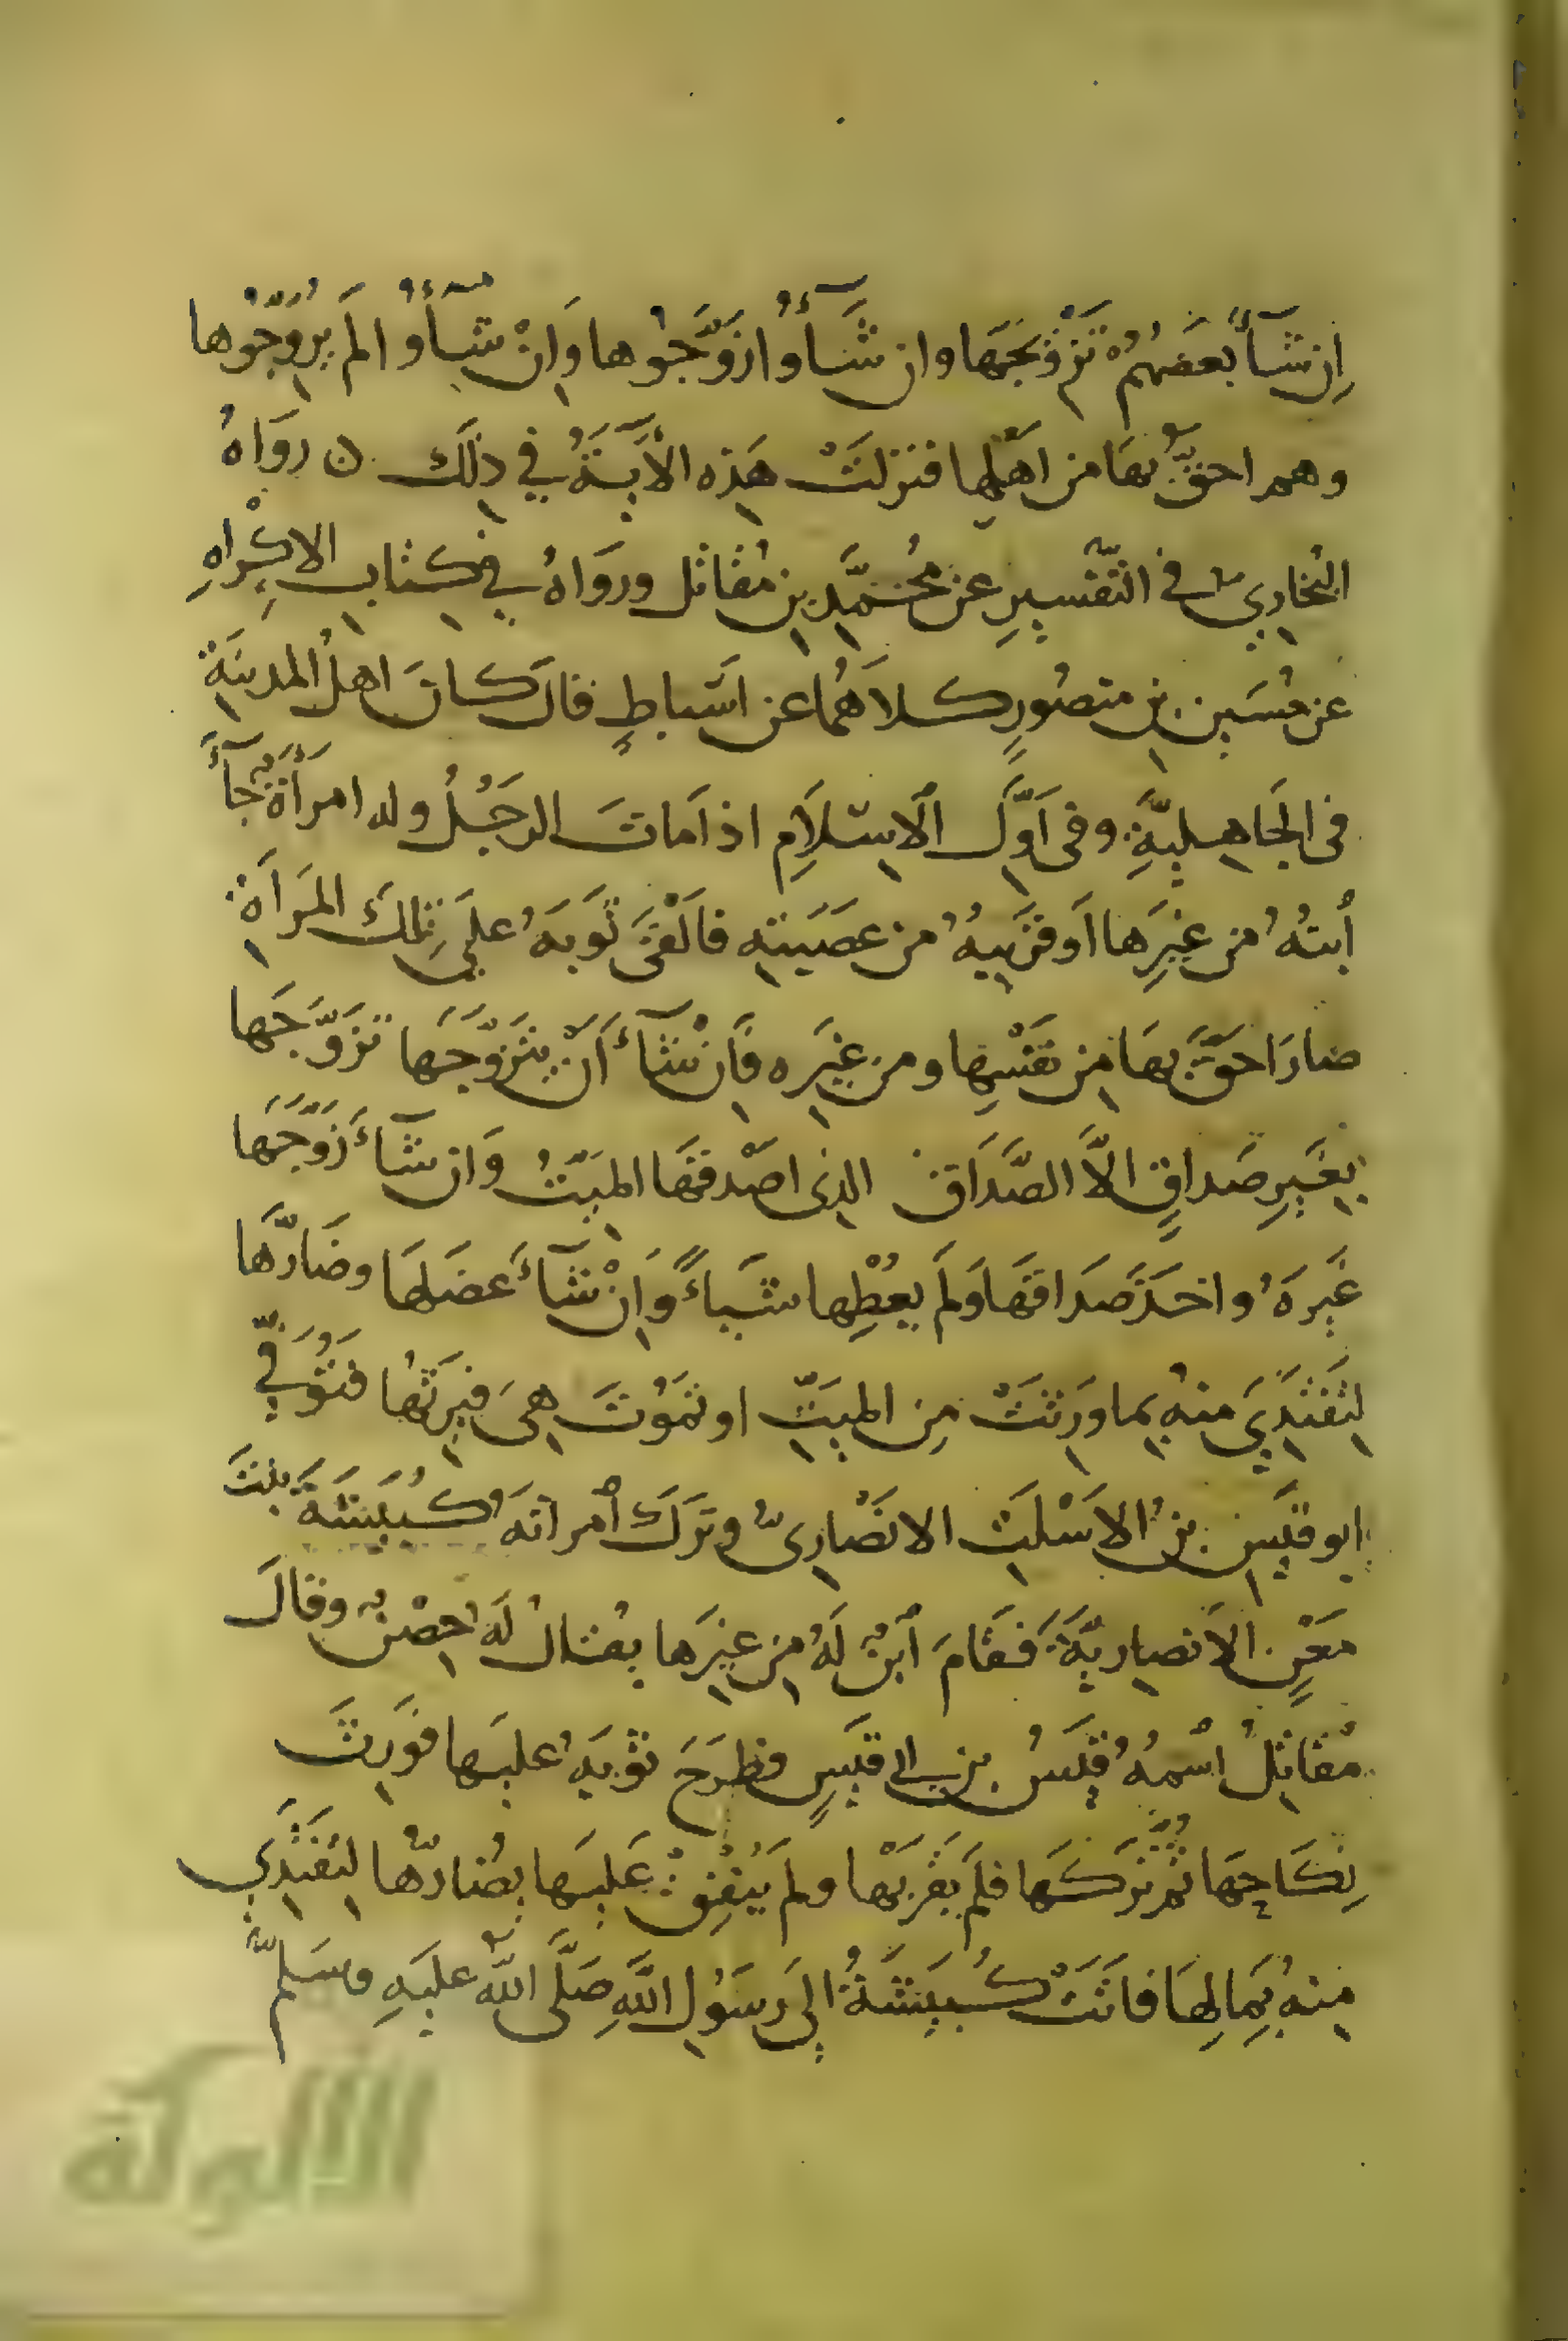 اِن شَآءَ بعَضهُمُ تزَوَّجَهَا وان شَآءُوا زَوَّجُوها وَاِنْ شَآءُوا لمَ يُزَوِّجُوها
وهم احقُّ بهَا من اهَلِها فنزلَتْ هَذِه الاَيَةُ في ذلِكَ ن روَاهُ
البُخاري في التَّفسيرِ عن محُمَّدِ بنِ مُقاتل وروَاهُ في كِتابِ الاكِرْاهِ
عن حُسَين بنِ منصُورٍ كلاَهُما عن اسَباطٍ قالَ كانَ اهلُ المدِينَةِ
فى الجَاهِليَّةِ وفى اَوَّلِ الاِسْلاَمِ اذا مَاتَ الرجَُلُ وله امرَأَةٌ جَآءَ
اُبنهُ من غيِرَها اَو قرَيبهُ من عصَبَتِه فالَقْىَ ثَوبَهُ علىَ تِلكَ المَرأَةِ
صارَ احَقَّ بهَا مِن نَفْسِها ومن غيَرِه فَاِنْ شَآءَ اَنْ يتَزَوَّجَهَا تزَوَّجَها
بِغَيرِ صَداقٍ الاَّ الصَّدَاقَ الذِى اصَْدقَهَا الميَّتُ وَان شَآءَ زَوَّجَهَا
غيَرَهُ واخذَ صَدَاقَهَا وَلمَ يعُطْهِا شيَاءً وَاِنْ شَآءَ عضَلَهَا وضَارَّها
لِتفَتَدِيَ مِنهُ بِما وَرِثَتْ مِن الميّتِ او تمَوُتَ هِىَ فيَرِثهُا فتَوُُفّيَ
ابو قيَسِ بنُ الاَسْلَتِ الانَصْارِىُّ وتَرَكَ اُمرأتَهَ كُبيَشَةَ بنتَ
مَعْنٍ الاَنصارِيَّةَ فَقَامَ اُبنٌ لَهُ مِن غيِرَها يقُالُ لَهُ حِصْنٌ وقالَ
مُقاتِلُ اسْمهُُ قَيسُ بن ابى قيَسٍ فطرَحَ ثوَبَهُ عليَها فوَرِثَ
نِكَاحَهَا ثمُ ترَكَهَا فلَم يَقرَبْهَا ولمَ يُنْفِقْ عَليَها يضُارُّها لِتَفتَدِي
مِنهُ بِمَالِهَا فاتَتَْ كُبيَشَةُ اِلَى رسَوُلِ اللَّهِ صَلَّى اللَّهُ عَليَهِ وسَلَّم
الألوكة